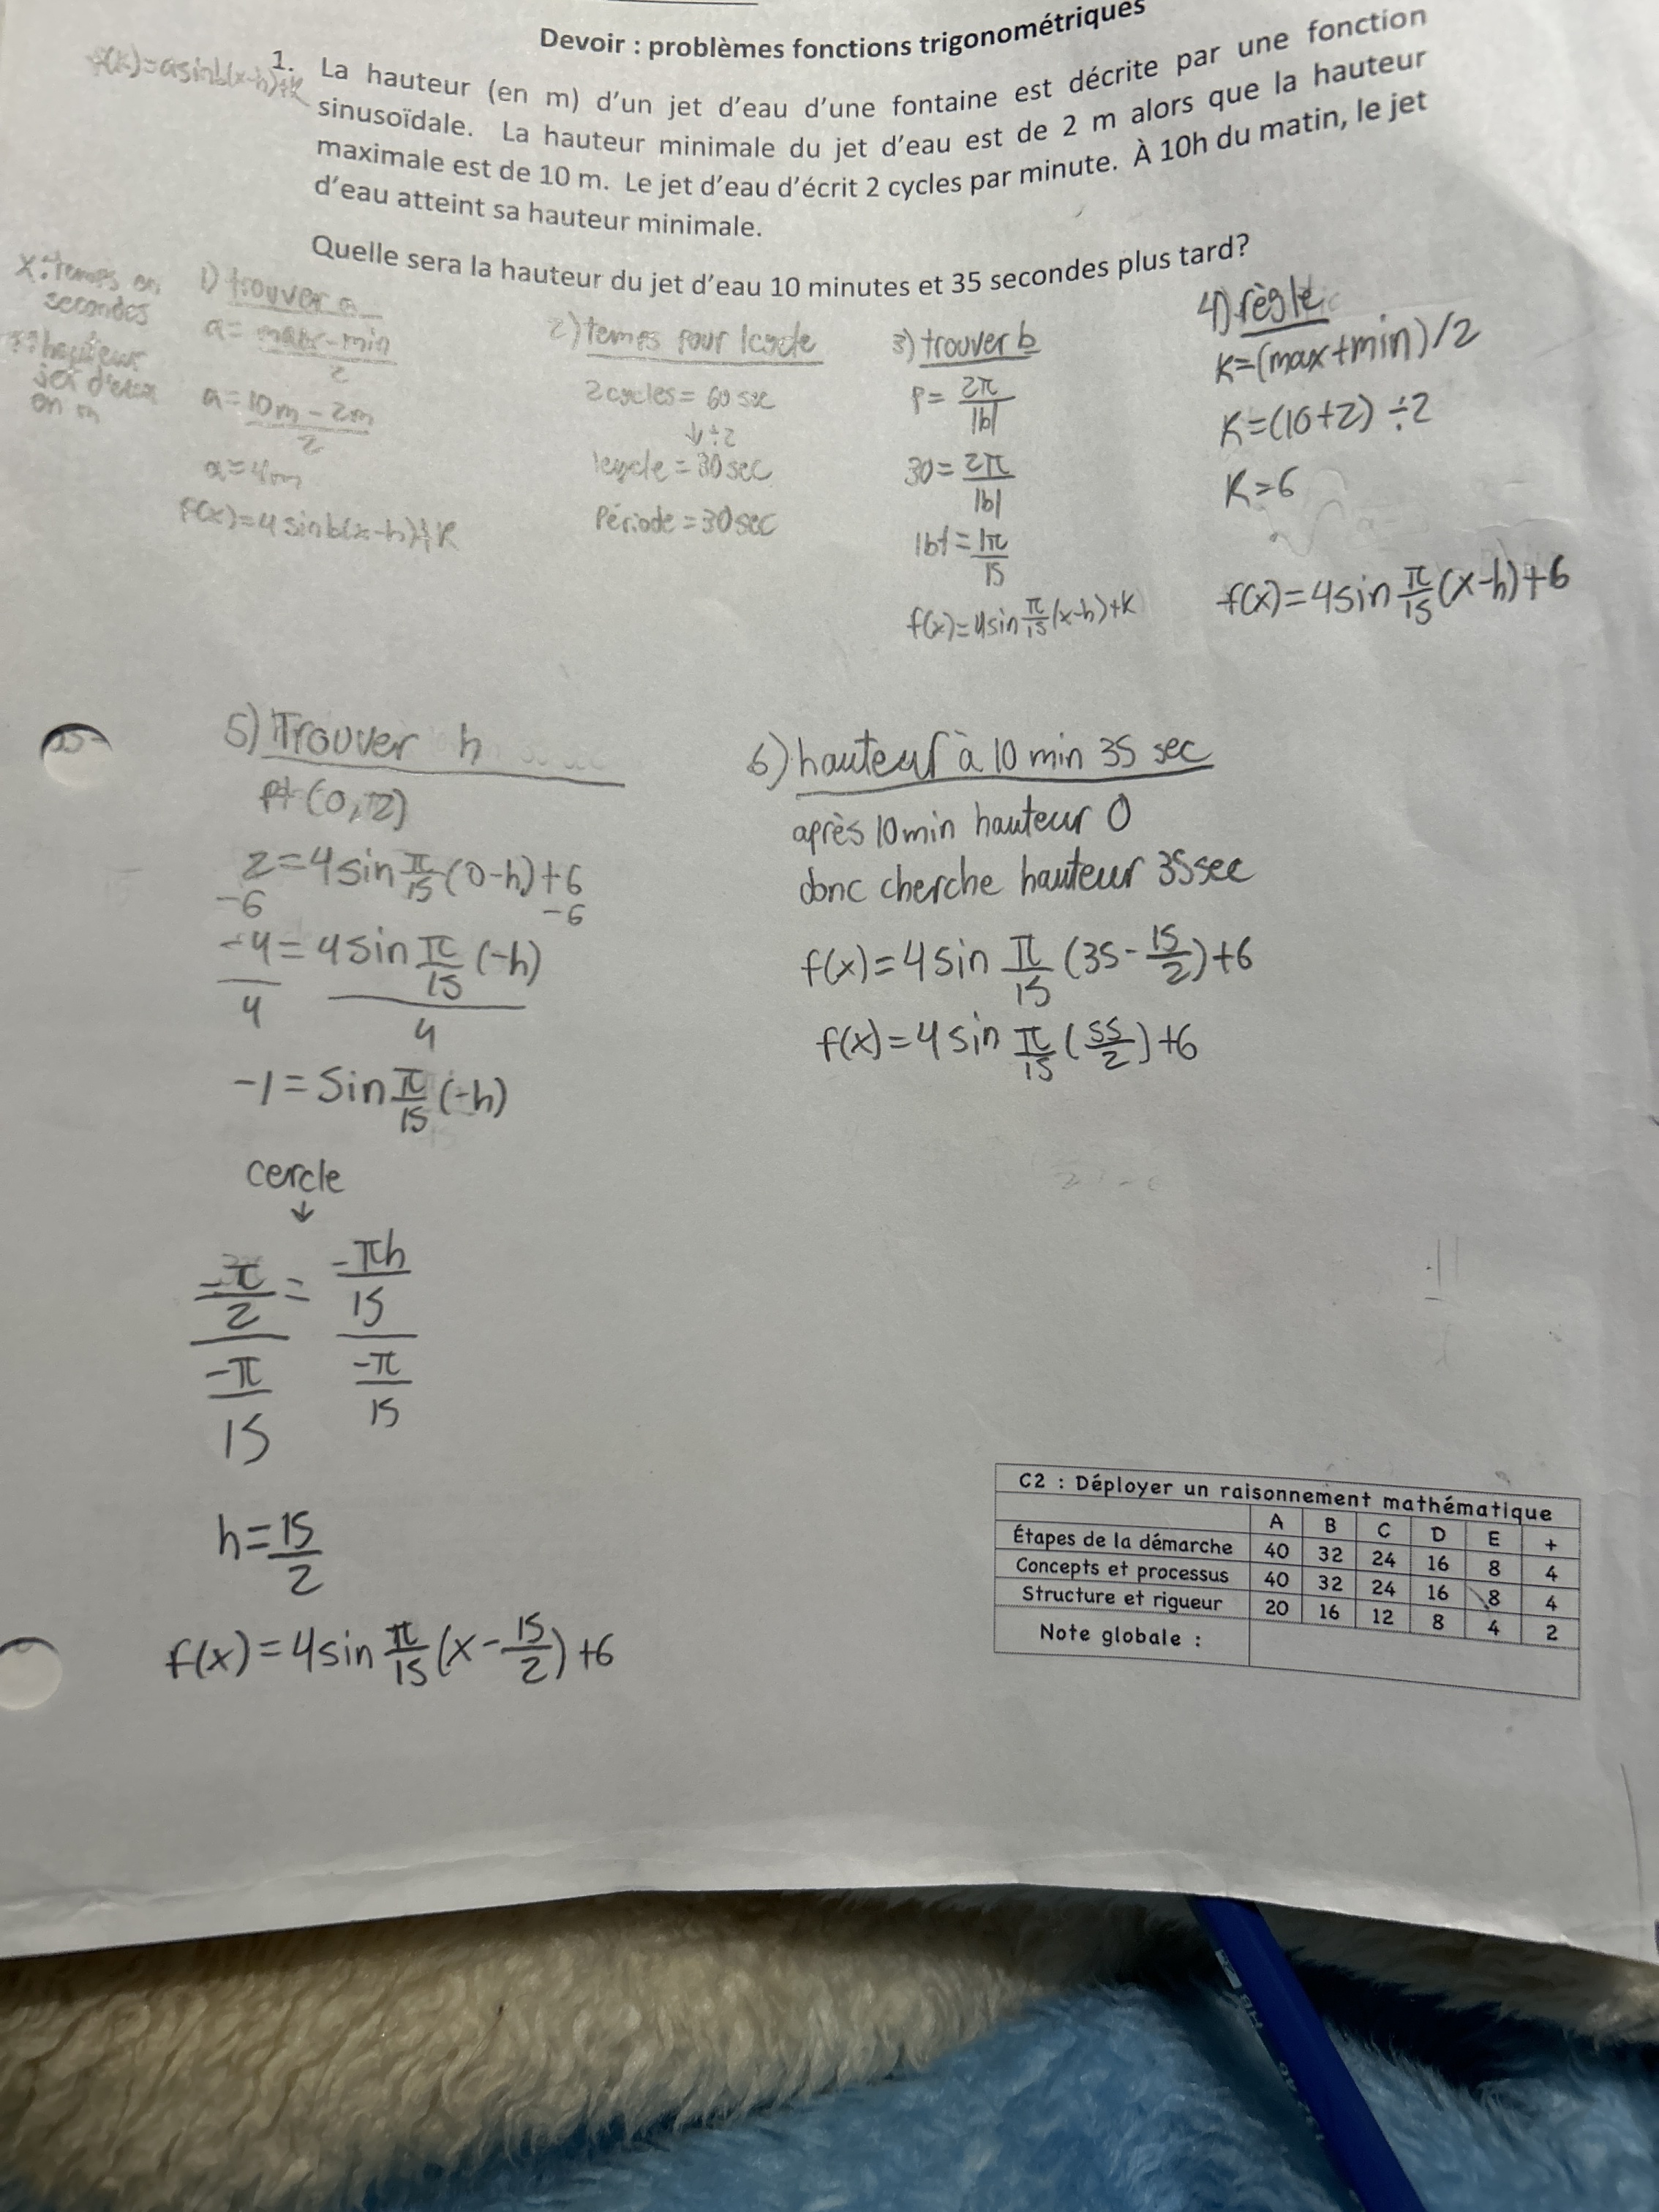 Devoir : problèmes fonctions trigonométriques
f(x)=asinb(x-h)+k
1. La hauteur (en m) d'un jet d'eau d'une fontaine est décrite par une fonction
sinusoïdale. La hauteur minimale du jet d'eau est de 2 m alors que la hauteur
maximale est de 10 m. Le jet d'eau d'écrit 2 cycles par minute. À 10h du matin, le jet
d'eau atteint sa hauteur minimale.
Quelle sera la hauteur du jet d'eau 10 minutes et 35 secondes plus tard?
x: temps en
secondes
hauteur
jet d'eau
en m
1) trouver a
a= max-min/2
a=10m-2m/2
a=4m
f(x)=4sinb(x-h)+k
2) temps pour 1cycle
2cycles=60sec
↓÷2
1cycle=30sec
Période=30sec
3) trouver b
P=2π/|b|
30=2π/|b|
|b|=1π/15
f(x)=4sin π/15(x-h)+k
4) règle
K=(max+min)/2
K=(10+2)÷2
K=6
f(x)=4sin π/15(x-h)+6
5) Trouver h
pt(0,2)
2=4sin π/15(0-h)+6
-6 -6
-4/4=4sin π/15(-h)/4
-1=sin π/15(-h)
cercle
↓
-π/2 = -πh/15
-π/15 -π/15
h=15/2
f(x)=4sin π/15(x-15/2)+6
6) hauteur à 10 min 35 sec
après 10min hauteur 0
donc cherche hauteur 35sec
f(x)=4sin π/15(35-15/2)+6
f(x)=4sin π/15(55/2)+6
C2 : Déployer un raisonnement mathématique
A B C D E +
Étapes de la démarche 40 32 24 16 8 4
Concepts et processus 40 32 24 16 8 4
Structure et rigueur 20 16 12 8 4 2
Note globale :